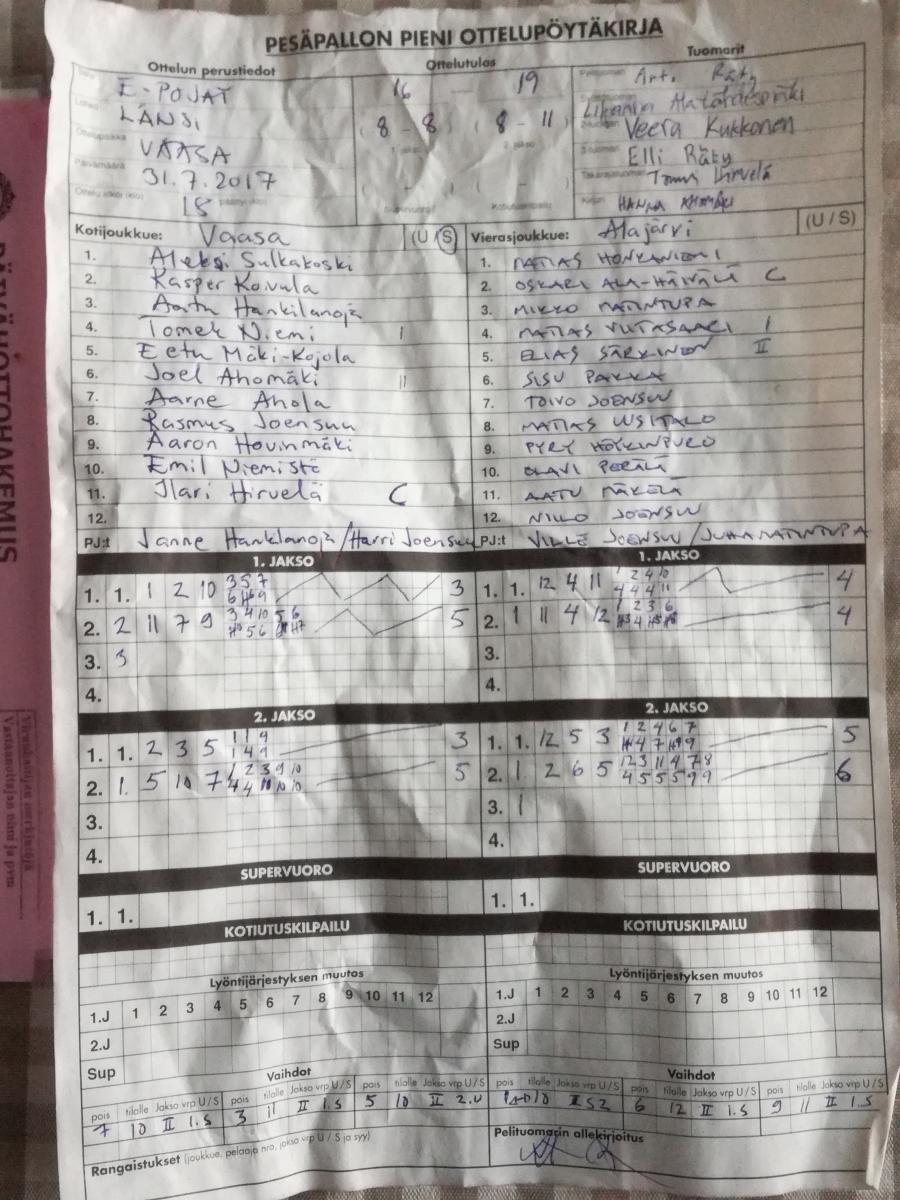 PESÄPALLON PIENI OTTELUPÖYTÄKIRJA
Ottelun perustiedot
Ottelutulos
Tuomarit
E-POJAT
LÄNSI
VAASA
Päivämäärä
31.7.2017
18
16 19
(8 - 8) (8 - 11)
1. jakso 2. jakso
( - ) ( - )
Supervuoro Kotiutuskilpailu
Veera Kukkonen
Elli Räty
Kotijoukkue: Vaasa (U / S)
1. Aleksi Sulkakoski
2. Kasper Koivula
3. Aatu Hankilanoja
4. Tomek Niemi I
5. Eetu Mäki-Kojola
6. Joel Ahomäki II
7. Aarne Ahola
8. Rasmus Joensuu
9. Aaron Hovinmäki
10. Emil Niemistö
11. Ilari Hirvelä C
12.
PJ:t Janne Hanklanoja/Harri Joensuu
Vierasjoukkue: Alajärvi (U / S)
1. MATIAS HONKANIEMI
2. OSKARI ALA-HÄIVÄLÄ C
3. MIKKO MATINTUPA
4. MATIAS VIITASAARI I
5. ELIAS SÄRKINEN II
6. SISU PAKKA
7. TOIVO JOENSUU
8. MATIAS UUSITALO
9. PYRY HÖYKINPURO
10. OLAVI PERÄLÄ
11. AATU MÄKELÄ
12. NIILO JOENSUU
PJ:t VILLE JOENSUU / JUHA MATINTUPA
1. JAKSO
1. 1. 1 2 10 3 5 7 3
2. 2 11 7 9 3 4 10 5 6 5
3. 3
4.
1. JAKSO
1. 1. 12 4 11 1 2 4 10 4 4 4 11 4
2. 1 11 4 12 1 2 3 6 4
3.
4.
2. JAKSO
1. 1. 2 3 5 1 1 9 1 4 9 3
2. 1. 5 10 7 1 2 3 9 10 4 4 10 10 10 5
3.
4.
2. JAKSO
1. 1. 12 5 3 1 2 4 6 7 5
2. 1. 2 6 5 1 2 3 11 4 7 8 4 5 5 5 9 9 6
3. 1
4.
SUPERVUORO
1. 1.
SUPERVUORO
1. 1.
KOTIUTUSKILPAILU
KOTIUTUSKILPAILU
Lyöntijärjestyksen muutos
1.J 1 2 3 4 5 6 7 8 9 10 11 12
2.J
Sup
Lyöntijärjestyksen muutos
1.J 1 2 3 4 5 6 7 8 9 10 11 12
2.J
Sup
Vaihdot
pois tilalle Jakso vrp U / S pois tilalle Jakso vrp U / S pois tilalle Jakso vrp U / S
7 10 II 1.S 3 11 II 1.S 5 10 II 2.U
Vaihdot
pois tilalle Jakso vrp U / S pois tilalle Jakso vrp U / S pois tilalle Jakso vrp U / S
6 12 II 1.S 9 11 II 1.S
Rangaistukset (joukkue, pelaaja nro, jakso vrp U / S ja syy)
Pelituomarin allekirjoitus